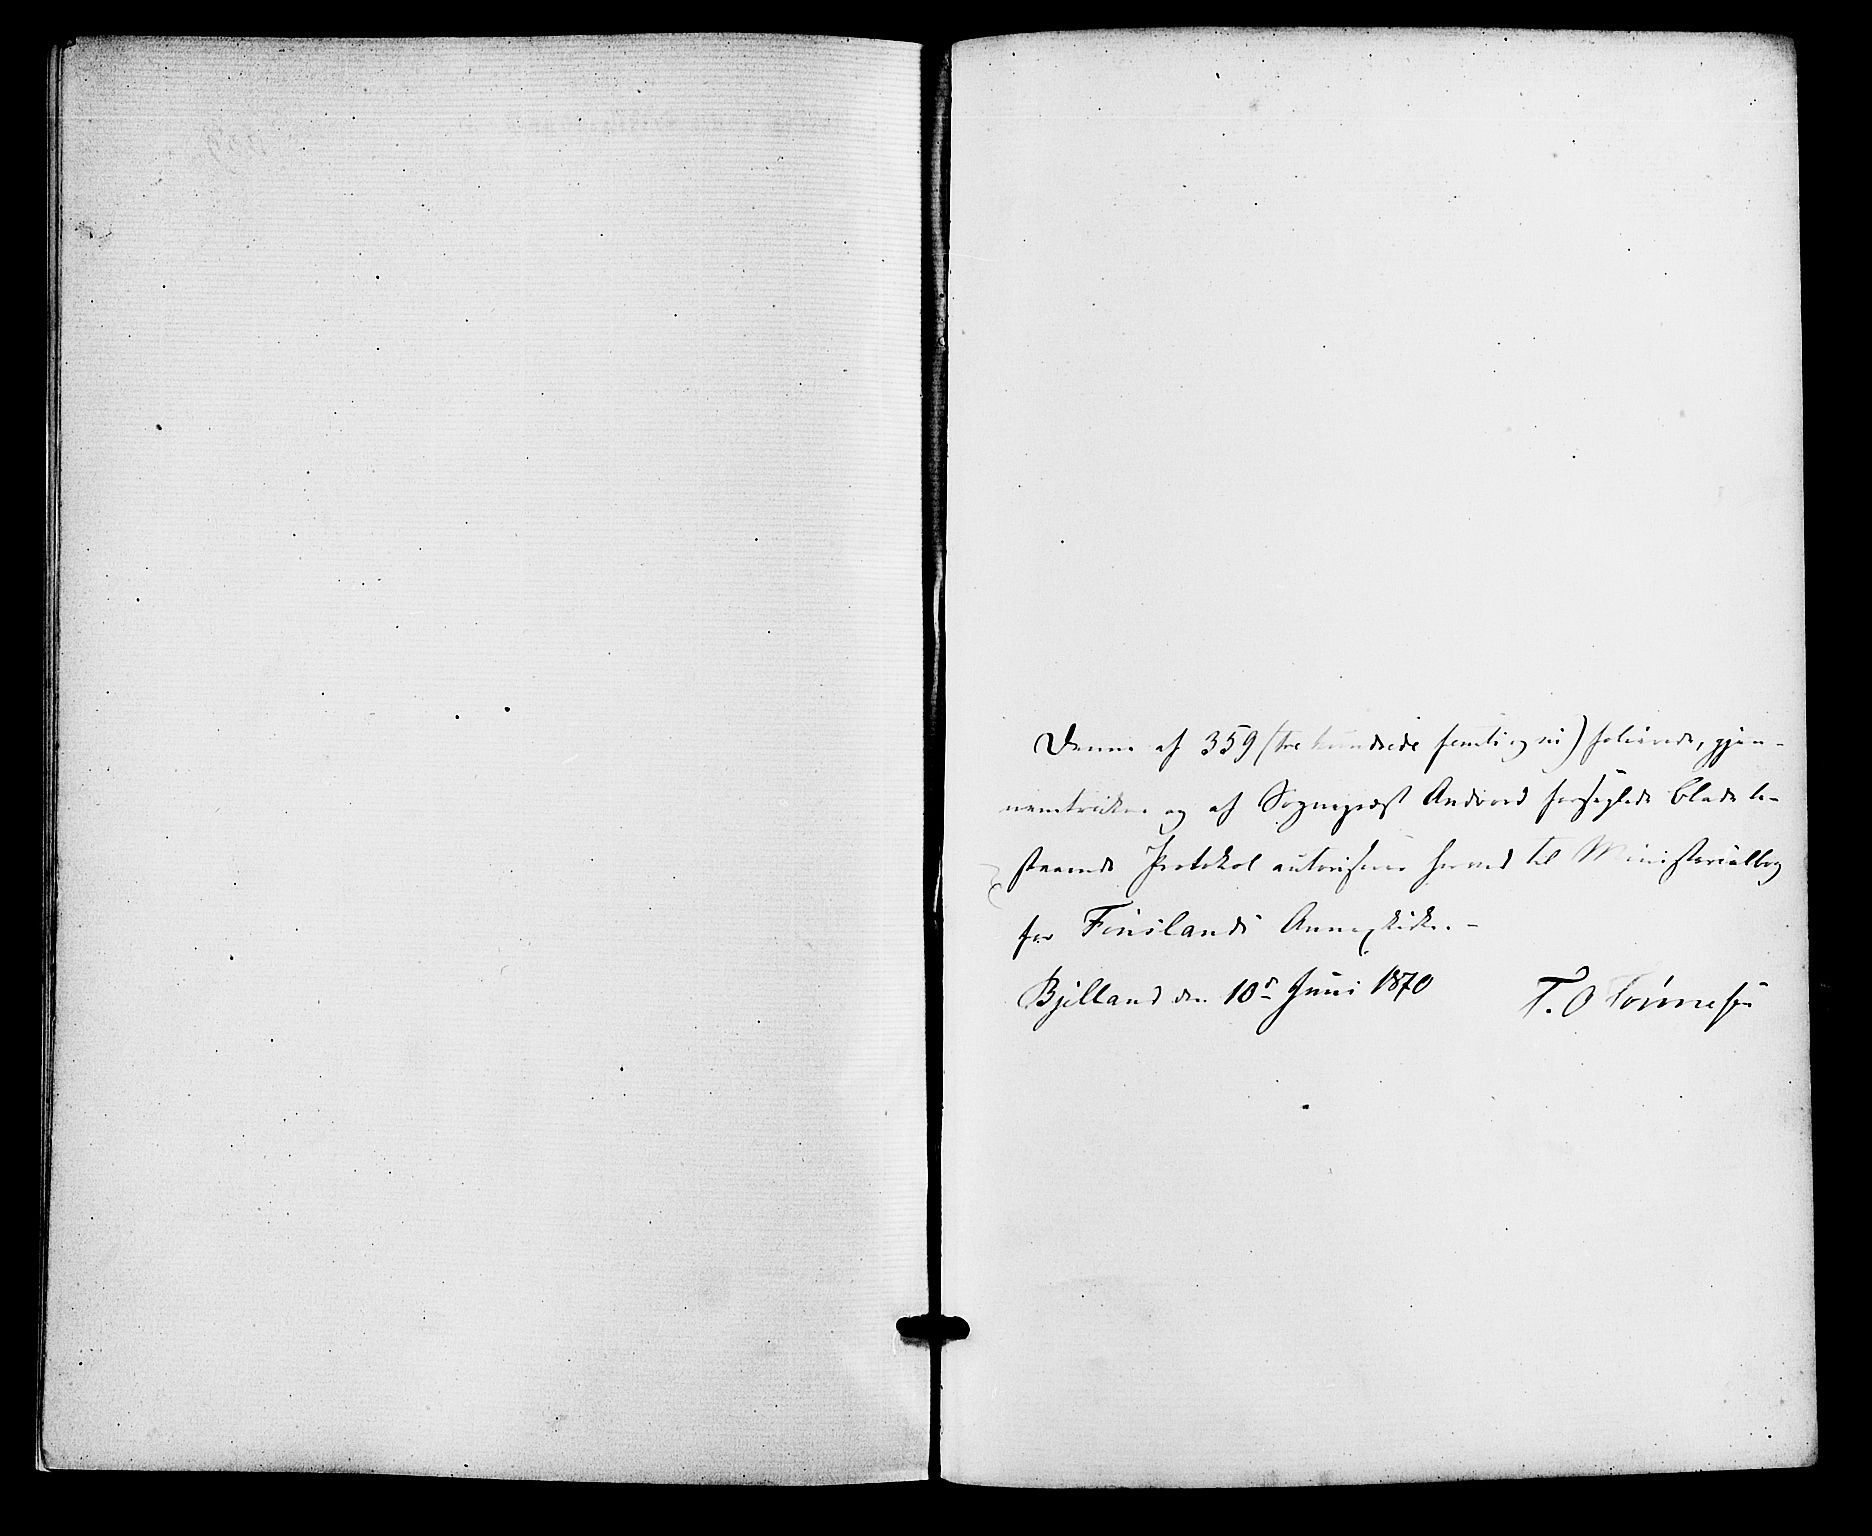 Denne af 359 (tre hundrede femti og ni) folierede, gjen-
nemtrukne og af Sogneprest Andvord forseglede Blade be-
staaende Protokol autoriseres herved til Ministerialbog
for Finslands Annexkirke.-
Bjelland den 10de Juni 1870 T. O Tønnesen